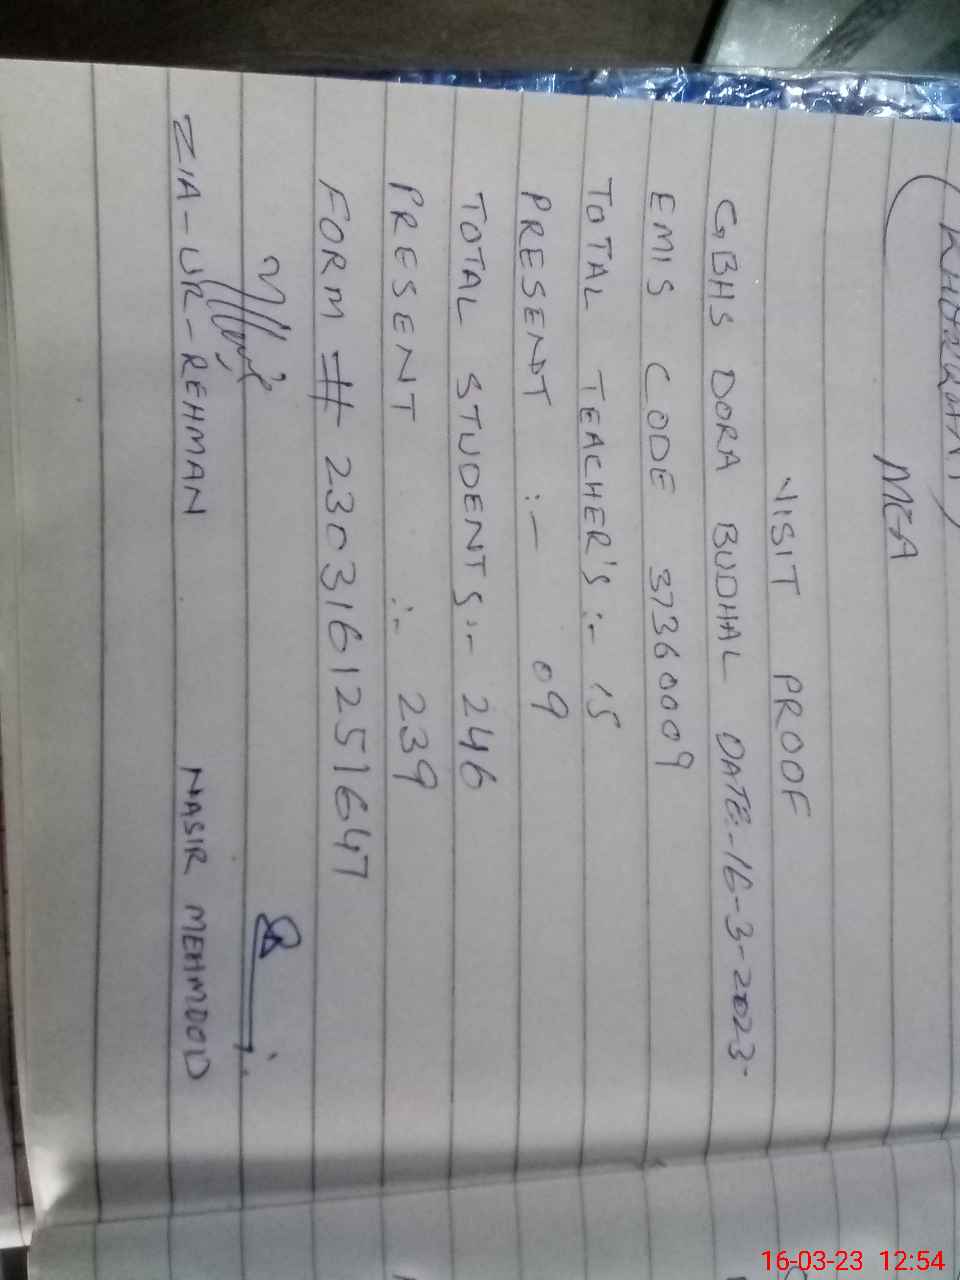 MEA
VISIT PROOF
GBHS DORA BUDHAL DATE:-16-3-2023-
EMIS CODE 37360009
TOTAL TEACHER'S :- 15
PRESENT :- 09
TOTAL STUDENTS:- 246
PRESENT :- 239
FORM # 2303161251647
ZIA-UR-REHMAN NASIR MEHMOOD
16-03-23 12:54